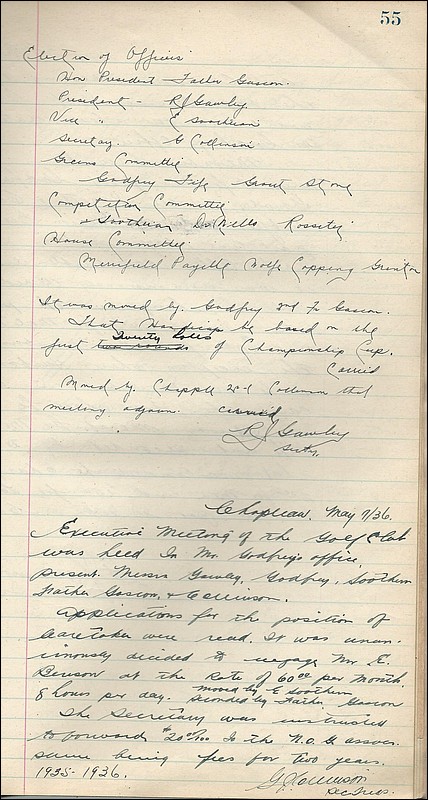 55
Election of Officers
Hon President - Father Gascon.
President - R J Gawley
Vice " E Soothern
Secretary. G Collinson
Greens Committee
Godfrey Fife Grout Stone
Competition Committee
Soothern Dr Wells Rosseter
House Committee
Merrifield Payette Wolfe Copping
It was moved by. Godfrey 2nd Fr Gascon.
That Handicap be based on the
first two rounds Twenty holes of Championship Cup.
Carried
Moved by. Chappell 2nd Collinson that
meeting adjourn. Carried
R J Gawley
Secty.
Chapleau. May 7/36.
Executive Meeting of the Golf Club
was held In Mr. Godfrey's office,
present. Messrs Gawley, Godfrey, Soothern
Father Gascon, & Collinson.
Applications for the position of
Caretaker were read. It was unan-
imously decided to engage Mr. E.
Benson at the Rate of 60.00 per Month.
8 hours per day. moved by E Soothern
Seconded by Father Gascon
The Secretary was instructed
to forward $20.00 to the N.O.G. assoc.
same being fees for two years.
1935-1936.
G Collinson
Sec Treas.